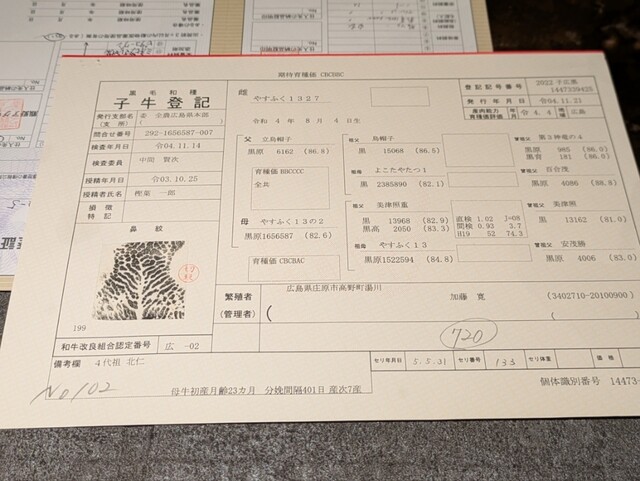 期待育種価 CBCBBC
黒毛和種
子牛登記
雌 やすふく1327
令和 4年 8月 4日生
登記記号番号 2022 子広黒 1447339425
発行年月日 令04.11.21
産肉能力育種価評価 年月 令 4. 4 広島
発行支部名(支所) 委 全農広島県本部
問合せ番号 292-1656587-007
検査年月日 令04.11.14
検査委員 中間 賢次
授精年月日 令03.10.25
授精者氏名 樫粟 一郎
損徴特記
鼻紋
199
父 立烏帽子
黒原 6162 (86.8)
育種価 BBCCCC
全共
母 やすふく13の2
黒原1656587 (82.6)
育種価 CBCBAC
祖父 烏帽子
黒 15068 (86.5)
祖母 よこたやたつ1
黒 2385890 (82.1)
祖父 美津照重
黒 13968 (82.9)
黒高 2050 (83.3)
直検 1.02 J=08
間検 0.93 3.7
H19 52 74.3
祖母 やすふく13
黒原1522594 (84.8)
曽祖父 第3神竜の4
黒原 985 (86.0)
黒育 181 (86.0)
曽祖父 百合茂
黒原 4086 (88.8)
曽祖父 美津照
黒 13162 (81.0)
曽祖父 安茂勝
黒原 4006 (83.0)
繁殖者
(管理者)
広島県庄原市高野町湯川
加藤 寛 (3402710-20100900)
(
(
720
和牛改良組合認定番号 広 -02
備考欄 4代祖 北仁
No102
母牛初産月齢23カ月 分娩間隔401日 産次7産
セリ年月日 5.5.31 セリ番号 133 セリ体重 価格
個体識別番号 14473-